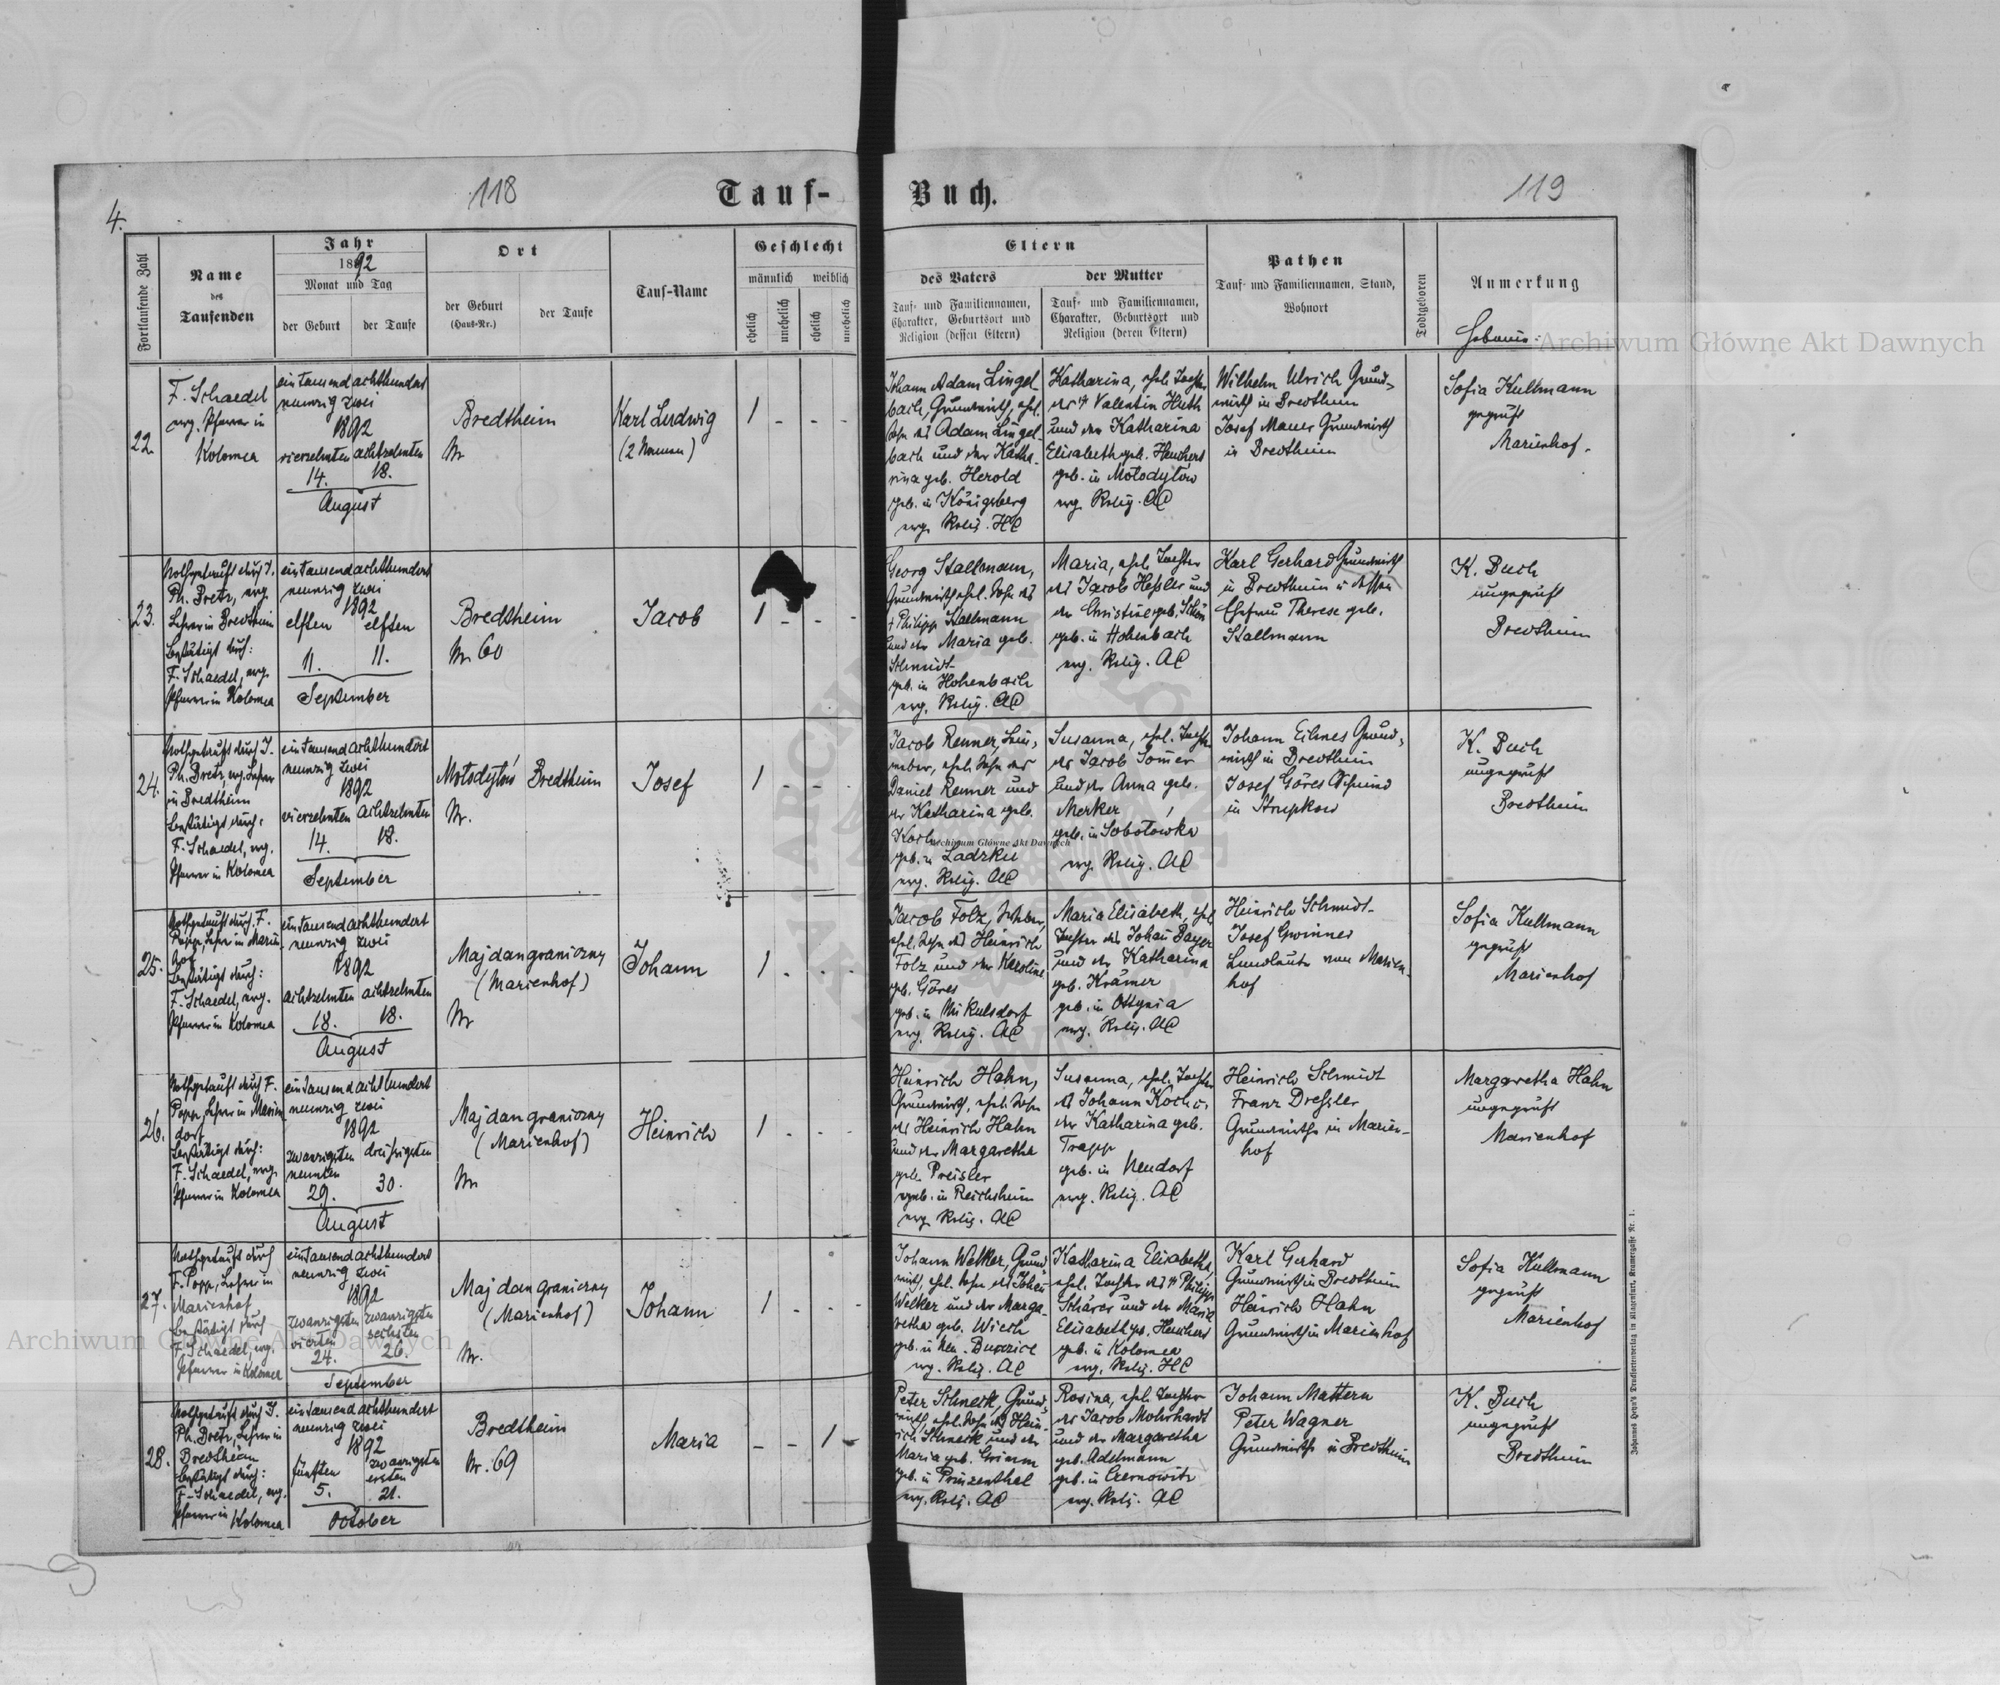 118
Tauf-
Buch.
119
4.
Fortlaufende Zahl
Name
des
Taufenden
Jahr
1892
Monat und Tag
der Geburt
der Taufe
Ort
der Geburt
(Haus-Nr.)
der Taufe
Tauf-Name
Geschlecht
männlich
weiblich
ehelich
unehelich
ehelich
unehelich
Eltern
des Vaters
der Mutter
Tauf- und Familiennamen,
Charakter, Geburtsort und
Religion (dessen Eltern)
Tauf- und Familiennamen,
Charakter, Geburtsort und
Religion (deren Eltern)
Pathen
Tauf- und Familiennamen, Stand,
Wohnort
Todtgeboren
Anmerkung
Archiwum Główne Akt Dawnych
22.
F. Schaedel
evg. Pfarrer in
Kolomea
ein tausend achthundert
neunzig zwei
1892
vierzehnten achtzehnten
14. 18.
August
Bredtheim
Nr
Karl Ludwig
(2 Namen)
1 - - -
Johann Adam Lingel-
bach, Grundwirth, ehel.
Sohn des Adam Lingel-
bach und der Katha-
rina geb. Herold
geb. in Königsberg
evg. Relig. HC
Katharina, ehel. Tochter
des † Valentin Huth
und der Katharina
Elisabeth geb. Heuchert
geb. in Mołodyłow
evg. Relig. AC
Wilhelm Ulrich Grund-
wirth in Bredtheim
Josef Mauer Grundwirth
in Bredtheim
Sofia Kullmann
geprüft
Marienhof.
23.
Nothgetauft durch J.
Ph. Bretz, evg.
Lehrer in Bredtheim
bestätigt durch:
F. Schaedel, evg.
Pfarrer in Kolomea
ein tausend achthundert
neunzig zwei
1892
elften elften
11. 11.
September
Bredtheim
Nr 60
Jacob
1 - - -
Georg Stallmann,
Grundwirth ehel. Sohn des
† Philipp Stallmann
und der Maria geb.
Schmidt
geb. in Hohenbach
evg. Relig. AC
Maria, ehel. Tochter
des Jacob Heßler und
der Christine geb. Schön
geb. in Hohenbach
evg. Relig. AC
Karl Gerhard Grundwirth
in Bredtheim u dessen
Ehefrau Therese geb.
Stallmann
K. Buch
ungeprüft
Bredtheim
24.
Nothgetauft durch J.
Ph. Bretz, evg. Lehrer
in Bredtheim
bestätigt durch:
F. Schaedel, evg.
Pfarrer in Kolomea
ein tausend achthundert
neunzig zwei
1892
vierzehnten achtzehnten
14. 18.
September
Mołodyłów Bredtheim
Nr.
Josef
1 - - -
Jacob Renner, Lein-
weber, ehel. Sohn des
Daniel Renner und
der Katharina geb.
geb. in Ladzkie
evg. Relig. AC
Archiwum Główne Akt Dawnych
Susanna, ehel. Tochter
des Jacob Somer
und der Anna geb.
Merker
geb. in Sobotowka
evg. Relig. AC
Johann Eilmes Grund-
wirth in Bredtheim
Josef Göres Schmied
in Strupkow
K. Buch
ungeprüft
Bredtheim
25.
Nothgetauft durch F.
Popp, Lehrer in Marien-
hof
bestätigt durch:
F. Schaedel, evg.
Pfarrer in Kolomea
ein tausend achthundert
neunzig zwei
1892
achtzehnten achtzehnten
18. 18.
August
Majdangraniczny
(Marienhof)
Nr
Johann
1 - - -
Jacob Folz, Weber,
ehel. Sohn des Heinrich
Folz und der Karoline
geb. Göres
geb. in Mikulsdorf
evg. Relig. AC
Maria Elisabeth, ehel
Tochter des Johan Bayer
und der Katharina
geb. Krämer
geb. in Ottynia
evg. Relig. AC
Heinrich Schmidt
Josef Gwinner
Landleute von Marien-
hof
Sofia Kullmann
geprüft
Marienhof
26.
Nothgetauft durch F.
Popp, Lehrer in Marien
dorf
bestätigt durch:
F. Schaedel, evg.
Pfarrer in Kolomea
ein tausend achthundert
neunzig zwei
1892
zwanzigsten dreissigsten
neunten
29. 30.
August
Majdangraniczny
(Marienhof)
Nr
Heinrich
1 - - -
Heinrich Hahn,
Grundwirth, ehel. Sohn
des Heinrich Hahn
und der Margaretha
geb. Preisler
geb. in Reichsheim
evg. Relig. AC
Susanna, ehel. Tochter
des Johann Koch u.
der Katharina geb.
Trapp
geb. in Neudorf
evg. Relig. AC
Heinrich Schmidt
Franz Dressler
Grundwirthe in Marien-
hof
Margaretha Hahn
ungeprüft
Marienhof
27.
Nothgetauft durch
F. Popp, Lehrer in
Marienhof
bestätigt durch
F. Schaedel, evg.
Pfarrer in Kolomea
ein tausend achthundert
neunzig zwei
1892
zwanzigsten zwanzigsten
vierten sechsten
24. 26.
September
Majdan graniczny
(Marienhof)
Nr.
Johann
1 - - -
Johann Welker, Grund-
wirth, ehel. Sohn des Johan
Welker und der Marga-
retha geb. Wiech
evg. Relig. AC
Katharina Elisabetha,
ehel. Tochter des † Philipp
Schärer und der Maria
Elisabeth geb. Heuchert
geb. in Kolomea
evg. Relig. HC
Karl Gerhard
Grundwirth in Bredtheim
Heinrich Hahn
Grundwirth in Marienhof
Sofia Kullmann
geprüft
Marienhof
Archiwum Główne Akt Dawnych
28.
Nothgetauft durch J.
Ph. Bretz, Lehrer in
Bredtheim
bestätigt durch:
F. Schaedel, evg.
Pfarrer in Kolomea
ein tausend achthundert
neunzig zwei
1892
fünften zwanzigsten
ersten
5. 21.
October
Bredtheim
Nr. 69
Maria
- - 1 -
Peter Schneck, Grund-
wirth, ehel. Sohn des Hein-
rich Schneck und der
Maria geb. Grimm
geb. in Prinzenthal
evg. Relig. AC
Rosina, ehel. Tochter
des Jacob Mohrhardt
und der Margaretha
geb. Adelmann
geb. in Czernowitz
evg. Relig. AC
Johann Mattern
Peter Wagner
Grundwirthe in Bredtheim
K. Buch
ungeprüft
Bredtheim
Johannes Heyn's Drucksortenverlag in Klagenfurt, Kramergasse Nr. 1.